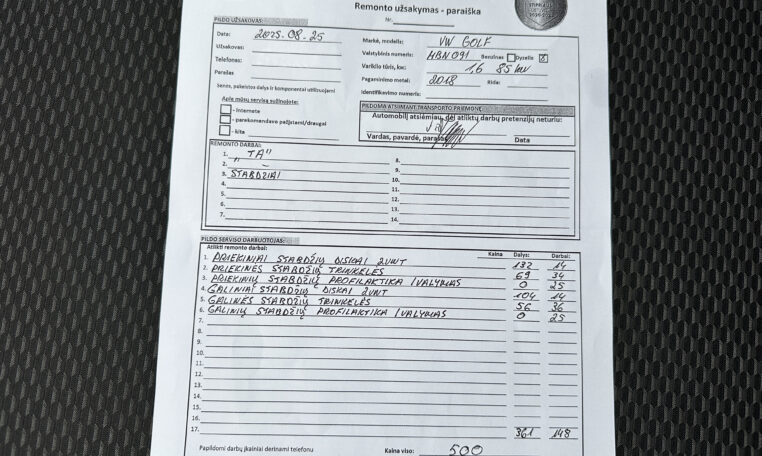 Remonto užsakymas - paraiška
Nr.
PILDO UŽSAKOVAS:
Data: 2025.08.25
Užsakovas:
Telefonas:
Parašas
Senos, pakeistos dalys ir komponentai utilizuojami
Apie mūsų servisą sužinojote:
- internete
- parekomendavo pažįstami/draugai
- kita
Markė, modelis: VW GOLF
Valstybinis numeris: HBN091 Benzinas Dyzelis X
Variklio tūris, kw: 1,6 85 kw
Pagaminimo metai: 2018 Rida:
Identifikavimo numeris:
PILDOMA ATSIIMANT TRANSPORTO PRIEMONĘ
Automobilį atsiėmiau, dėl atliktų darbų pretenzijų neturiu:
Vardas, pavardė, parašas Data
REMONTO DARBAI:
1. „TA"
2. –
3. STABDŽIAI
4.
5.
6.
7.
8.
9.
10.
11.
12.
13.
14.
PILDO SERVISO DARBUOTOJAS:
Atlikti remonto darbai: Kaina Dalys: Darbai:
1. PRIEKINIAI STABDŽIŲ DISKAI 2VNT 132 14
2. PRIEKINĖS STABDŽIŲ TRINKELĖS 69 34
3. PRIEKINIŲ STABDŽIŲ PROFILAKTIKA / VALYMAS 0 25
4. GALINIAI STABDŽIŲ DISKAI 2VNT 104 14
5. GALINĖS STABDŽIŲ TRINKELĖS 56 36
6. GALINIŲ STABDŽIŲ PROFILAKTIKA / VALYMAS 0 25
7.
8.
9.
10.
11.
12.
13.
14.
15.
16.
17. 361 148
Papildomi darbų įkainiai derinami telefonu Kaina viso: 500